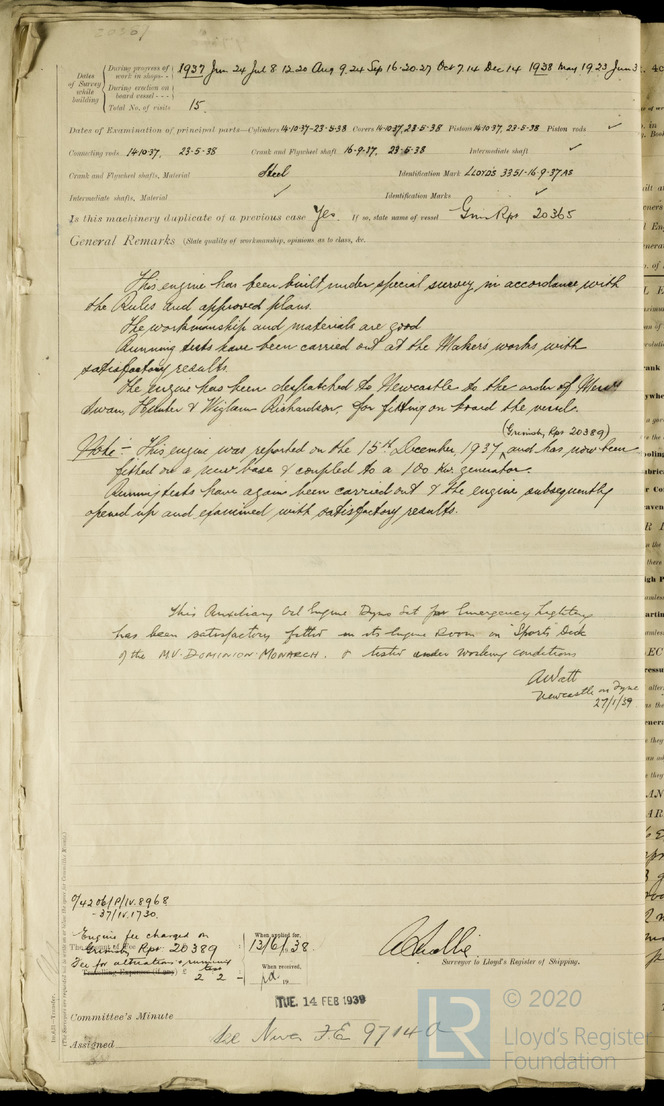 Dates of Survey while building
During progress of work in shops - - 1937 Jun 24 Jul 8 12.20 Aug 9.24 Sep 16.20.27 Oct 7.14 Dec 14 1938 May 19.23 Jun 3
During erection on board vessel - - -
Total No. of visits 15.
Dates of Examination of principal parts—Cylinders 14-10-37-23-5-38 Covers 14-10-37, 23-5-38 Pistons 14-10-37, 23-5-38 Piston rods ✓
Connecting rods 14-10-37, 23-5-38 Crank and Flywheel shaft 16-9-37, 23-5-38 Intermediate shaft ✓
Crank and Flywheel shafts, Material Steel Identification Mark LLOYDS 3351-16-9-37 AS
Intermediate shafts, Material ✓ Identification Marks ✓
Is this machinery duplicate of a previous case Yes. If so, state name of vessel Gms Rpt 20365
General Remarks (State quality of workmanship, opinions as to class, &c.
This engine has been built under special survey in accordance with
the Rules and approved plans.
The workmanship and materials are good
Running tests have been carried out at the Makers works with
satisfactory results.
The engine has been despatched to Newcastle to the order of Messrs
Swan, Hunter & Wigham Richardson, for fitting on board the vessel.
(Grimsby Rpt 20389)
Note:- This engine was reported on the 15th December, 1937, and has now been
fitted on a new base & coupled to a 100 Kw. generator.
Running tests have again been carried out & the engine subsequently
opened up and examined with satisfactory results.
This Auxiliary Oil Engine Dyno Set for Emergency Lighting
has been satisfactory fitted in its Engine Room on "Sports" Deck
of the M.V. DOMINION MONARCH. & tested under working conditions
AWatt
Newcastle on Tyne
27/1/39
0/4206/P/IV.8968
-37/IV.1730.
Engine fee charged on
The Amount of Fee
Grimsby Rpt 20389
Fee for alterations & running
Travelling Expenses (if any) £ tests
2 2 -
When applied for,
13/6/38.
When received,
pd 19
Surveyor to Lloyd's Register of Shipping.
TUE. 14 FEB 1939
Committee's Minute
Assigned
See Nwc F.E 97140
LR
© 2020
Lloyd's Register
Foundation